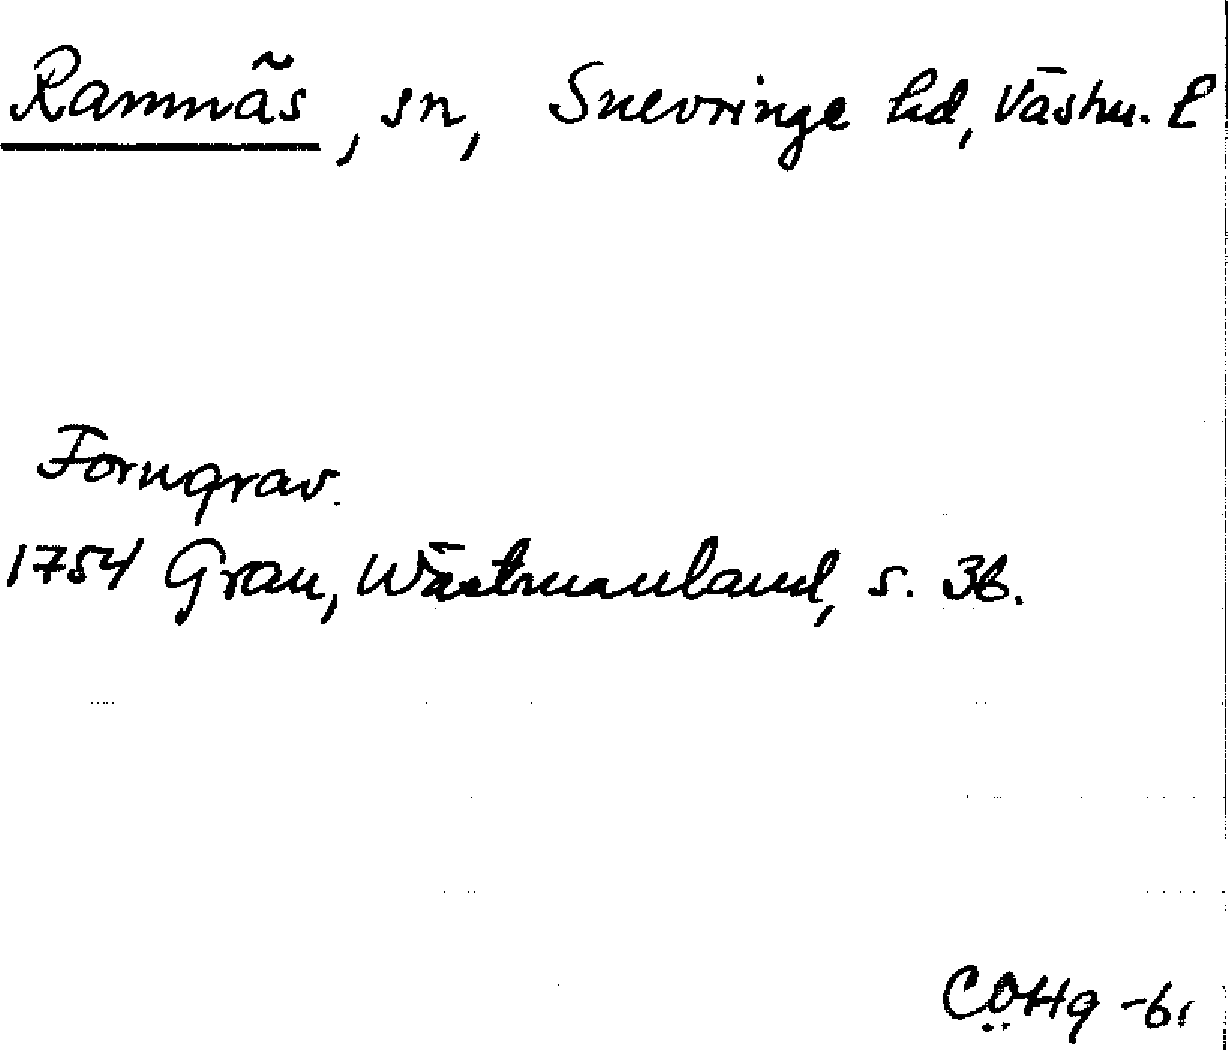 Ramnäs, sn, Snevringe hd, Västm. l
Forngrav.
1754 Grau, Wästmanland, s. 36.
CÖHg -61